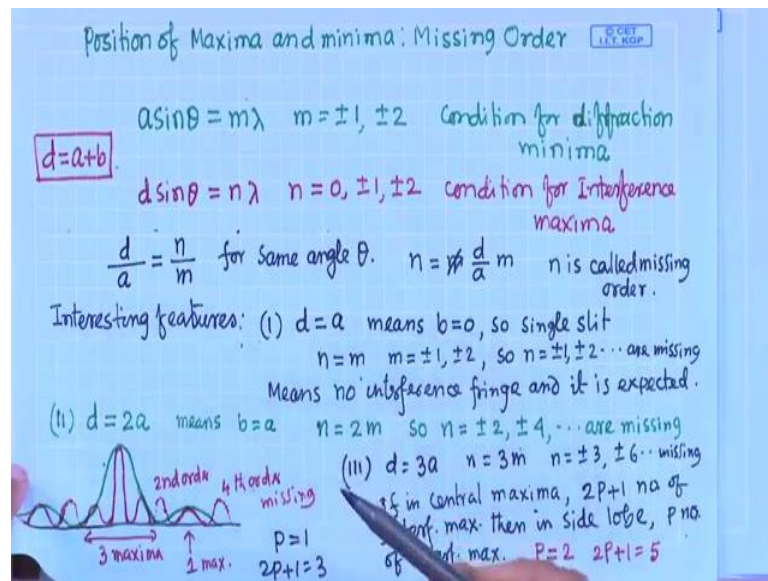 Position of Maxima and minima: Missing Order
© CET
I.I.T. KGP
asinθ = mλ m = ±1, ±2 Condition for diffraction
minima
d=a+b
dsinθ = nλ n = 0, ±1, ±2 condition for Interference
maxima
d/a = n/m for same angle θ. n = d/a m n is called missing
order.
Interesting features: (1) d=a means b=0, so single slit
n=m m=±1, ±2, so n=±1, ±2... are missing
Means no interference fringe and it is expected.
(11) d=2a means b=a n=2m so n=±2, ±4, ... are missing
(111) d=3a n=3m n=±3, ±6.. missing
2nd order 4th order
missing
If in central maxima, 2P+1 no of
max. then in side lobe, P no.
of max. P=2 2P+1=5
3 maxima 1 max. P=1
2P+1=3